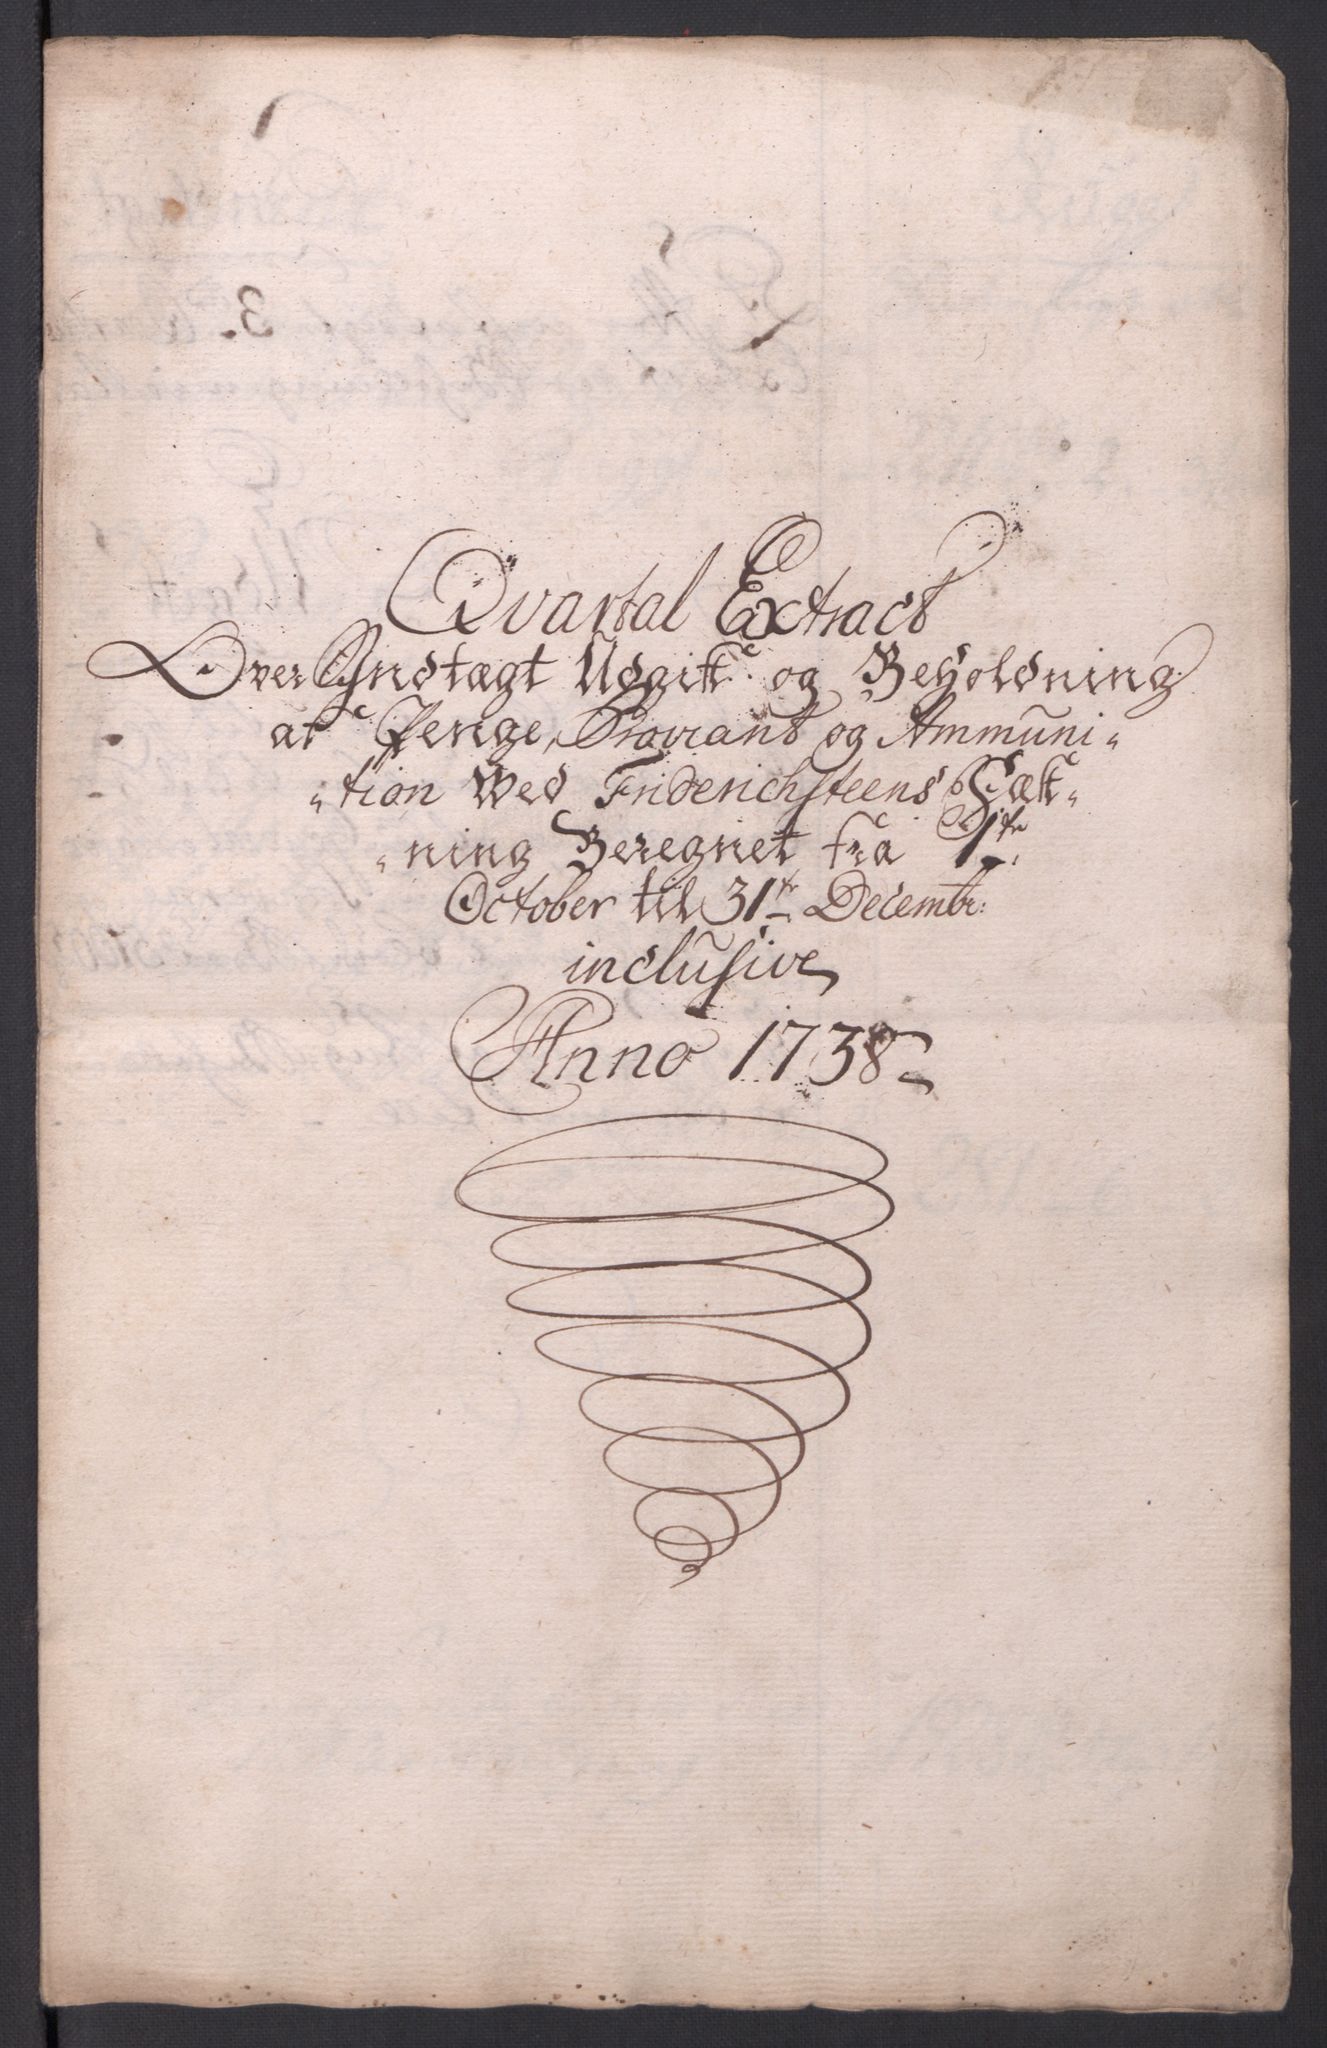 Qvartal Extract
Over Indtægt Udgift og Beholdning
af Penge, Proviant og Ammuni-
-tion Wed Friderichsteens Fæst-
-ning Beregnet fra 1te
October til 31te Decembr:
inclusive
Anno 1738